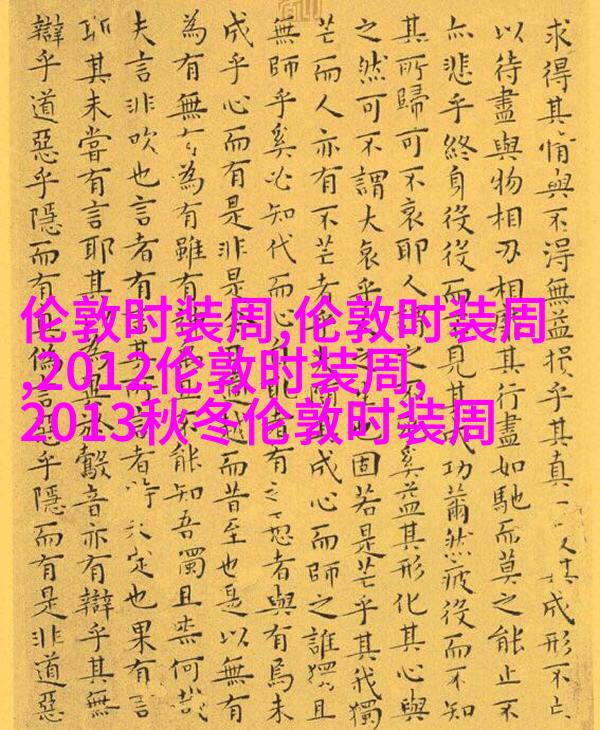 求得其情與不得無益損乎其真一其成形不亡
以待盡與物相刃相靡其行盡如馳而莫之能止不
亦悲乎終身役役而見其成功薾然疲役而不知
其所歸可不哀耶人之不奚益其形化其心與
之然可不謂大哀乎人之也固若是芒乎其我獨
芒而人亦有不芒者乎隨成心而師之誰獨且
無師乎奚必知代而心取者有之愚者與有焉未
成乎心而有是非是越而昔至也是以無有
為有無有為有雖有能知吾獨且柰何哉
夫言非吹也言者有言其言者特未定也果有言
耶其未嘗有言耶其為異鷇音亦有辯乎其無
辯乎道惡乎隱而有偽言惡乎隱而有是非道惡
伦敦时装周,伦敦时装周
,2012伦敦时装周,
2013秋冬伦敦时装周